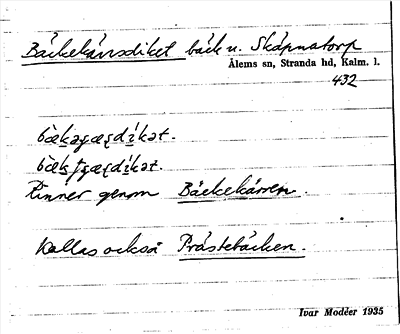 Bäckekärrsdiket bäck v. Skäpnatorp
Ålems sn, Stranda hd, Kalm. l.
432
Rinner genom Bäckekärren.
Kallas också Prästebäcken.
Ivar Modéer 1935